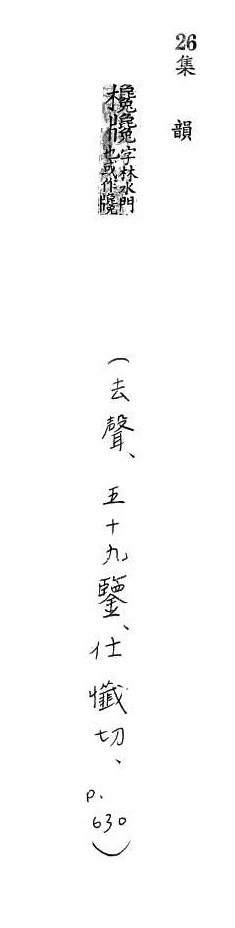 26
集韻
欃
字林水門
也或作
(去聲、五十九鑒、仕懺切、p.630)